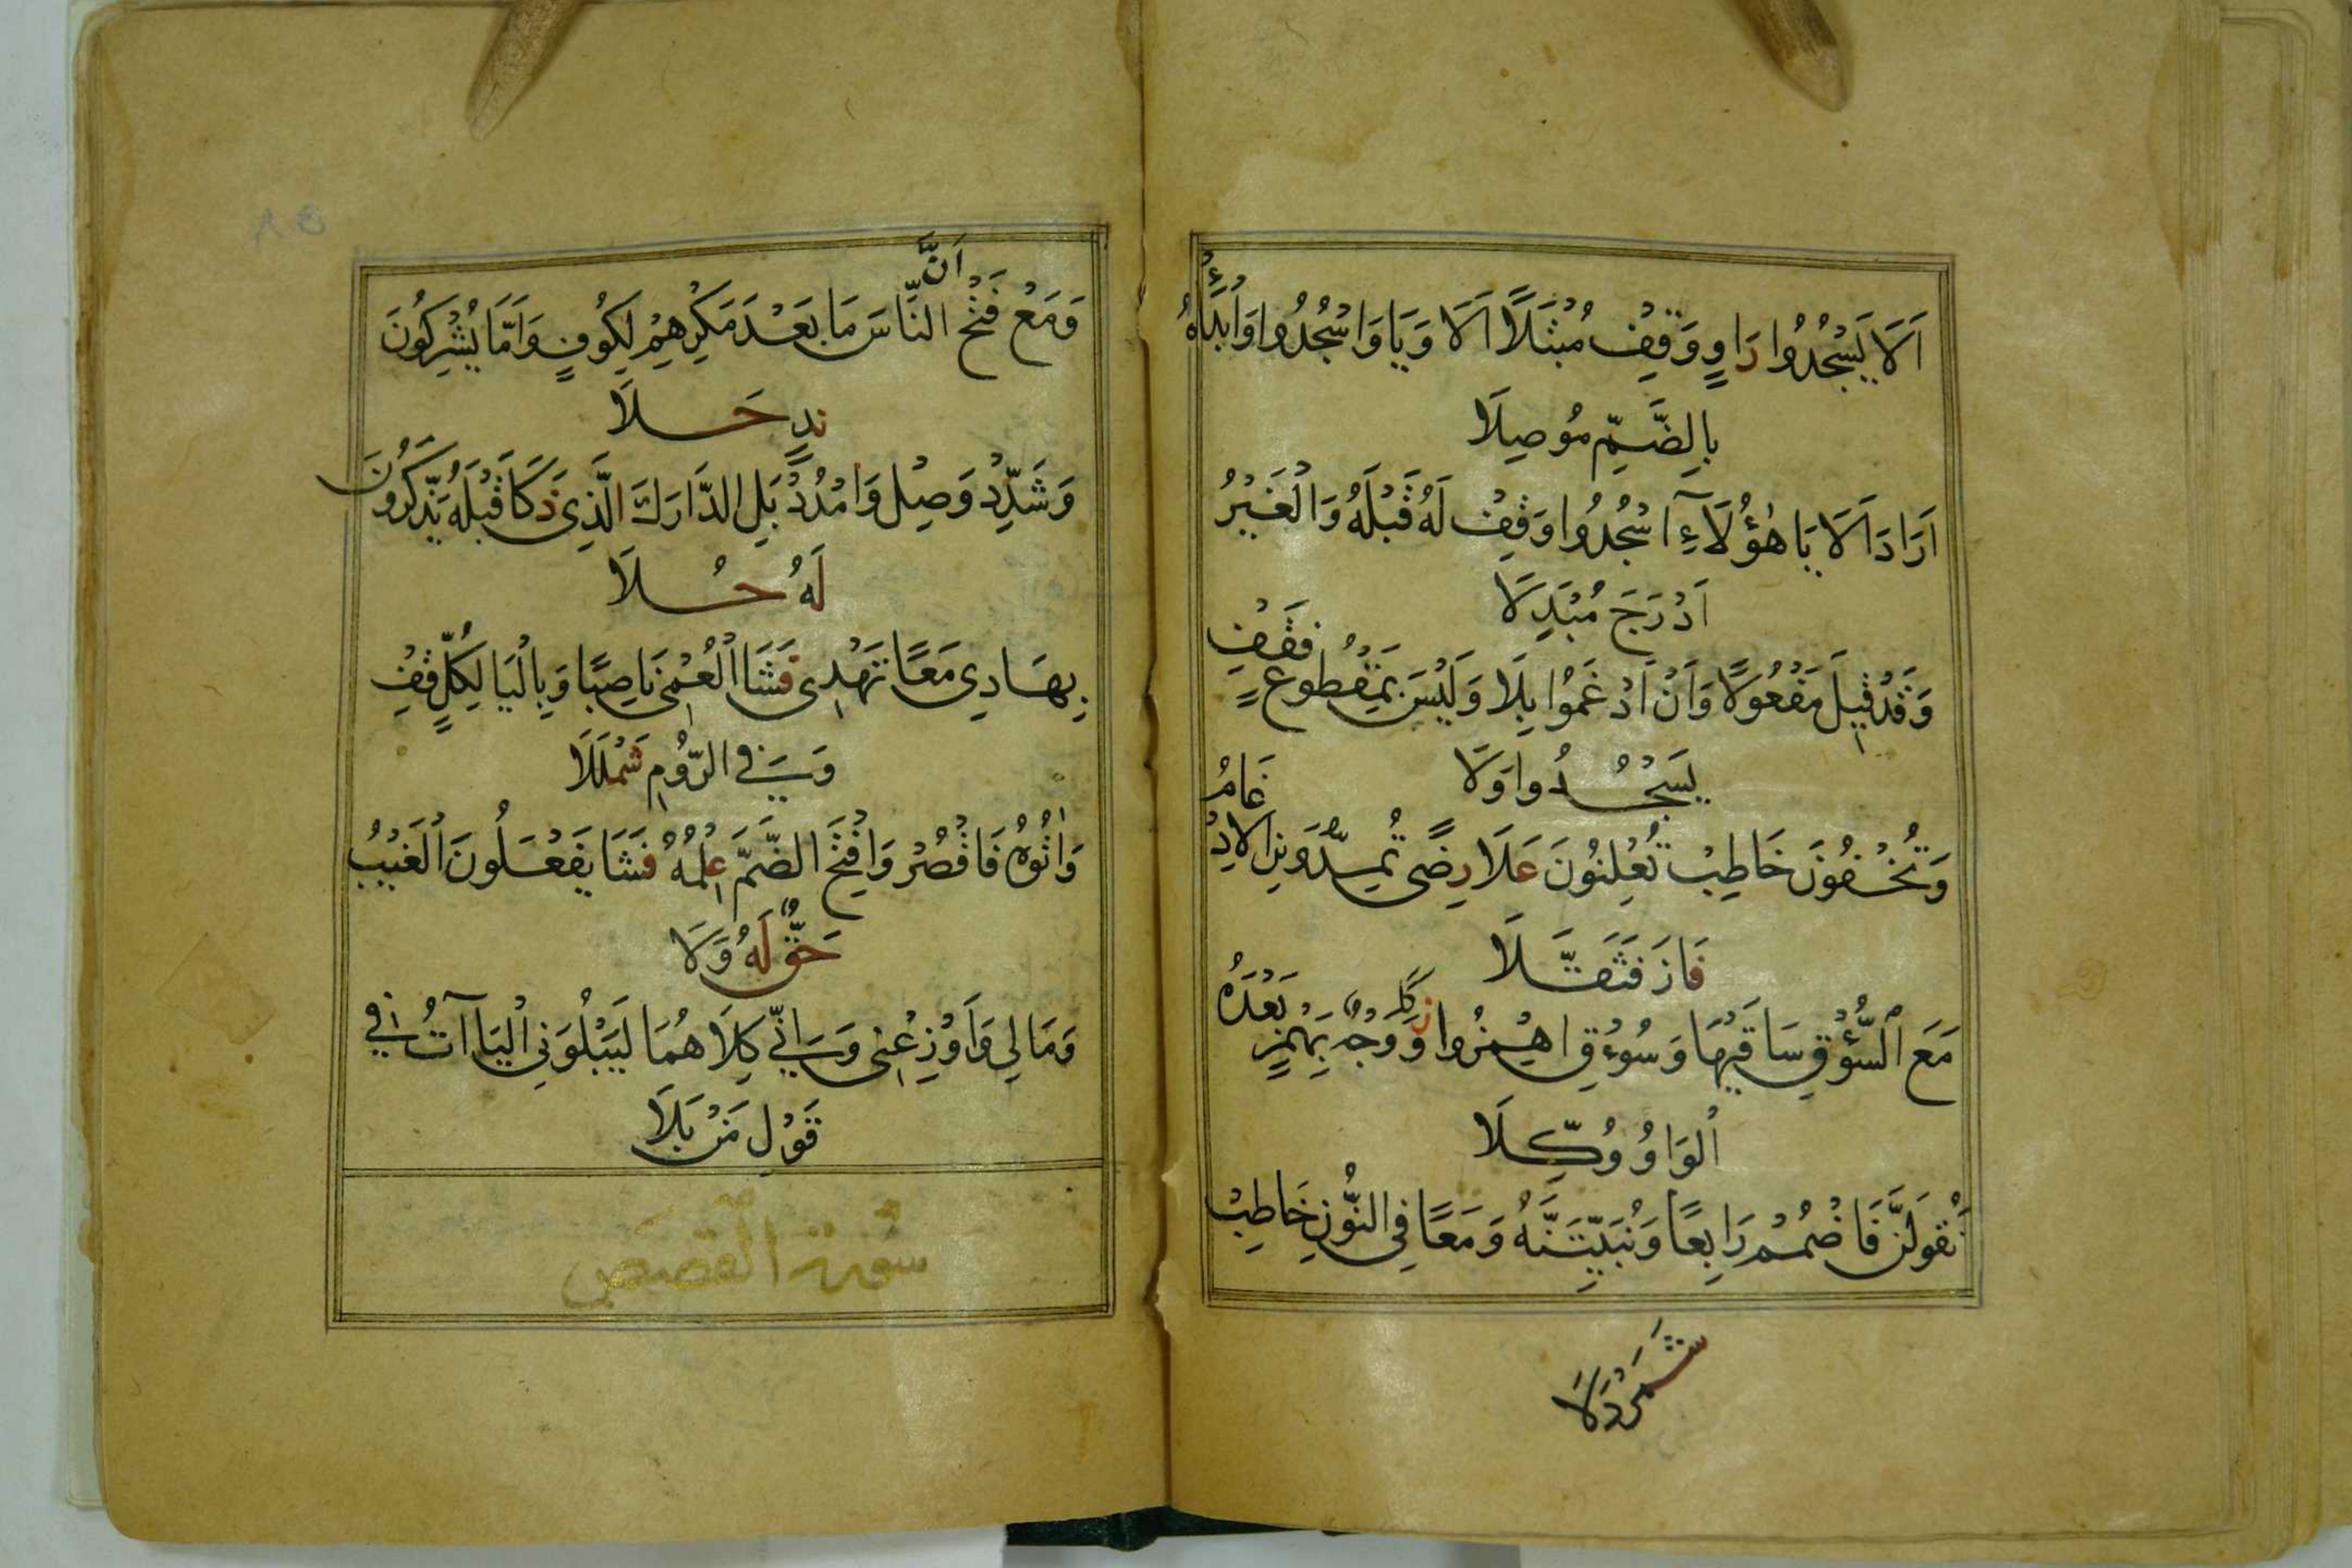 اَلَا يَسْجُدُوا رَاوٍ وَقِفْ مُبْتَلًا اَلَا وَيَا وَاسْجُدُوا وَابْدَأْهُ
بِالضَّمِّ مُوصِلَا
اَرَادَ اَلَا يَا هٰؤُلَآءِ اسْجُدُوا وَقِفْ لَهُ قَبْلَهُ وَالْغَيْرُ
اَدْرَجَ مُبْدِلَا
وَقَدْ قِيلَ مَفْعُولًا وَاَنْ اَدْغَمُوا بِلَا وَلَيْسَ بِمَقْطُوعٍ فَقِفْ
يَسْجُدُوا وَلَا
وَتُخْفُونَ خَاطِبْ تُعْلِنُونَ عَلَا رِضًى تُمِدُّونَنِ الْادْغَامُ
فَازَ فَثَقَّلَا
مَعَ السُّؤْقِ سَاقَيْهَا وَسُوءْقِ اهْمِزُوا زَكَا وَوَجْهٌ بِهَمْزٍ بَعْدَهُ
الْوَاوُ وُكِّلَا
نَقُولَنَّ فَاضْمُمْ رَابِعًا وَنُبَيِّتَنَّهُ وَمَعًا فِي النُّونِ خَاطِبْ
شَمَرْدَلَا
وَمَعْ فَتْحِ اَنَّ النَّاسَ مَا بَعْدَ مَكْرِهِمْ لِكُوفٍ وَاَمَّا يُشْرِكُونَ
نَدٍ حَلَا
وَشَدِّدْ وَصِلْ وَامْدُدْ بَلِ ادَّارَكَ الَّذِى ذَكَا قَبْلَهُ يَذَّكَّرُونَ
لَهُ حُلَا
بِهَادِي مَعًا تَهْدِى فَشَا الْعُمْىَ نَاصِبًا وَبِالْيَا لِكُلٍّ قِفْ
وَفِي الرُّومِ شَمْلَلَا
وَاٰتُوهُ فَاقْصُرْ وَافْتَحِ الضَّمَّ عِلْمُهُ فَشَا يَفْعَلُونَ الْغَيْبُ
حَقٌّ لَهُ وَلَا
وَمَالِي وَاَوْزِعْنِى وَاِنِّي كِلَاهُمَا لِيَبْلُوَنِي الْيَاآتُ فِي
قَوْلِ مَنْ بَلَا
سُورة القصص